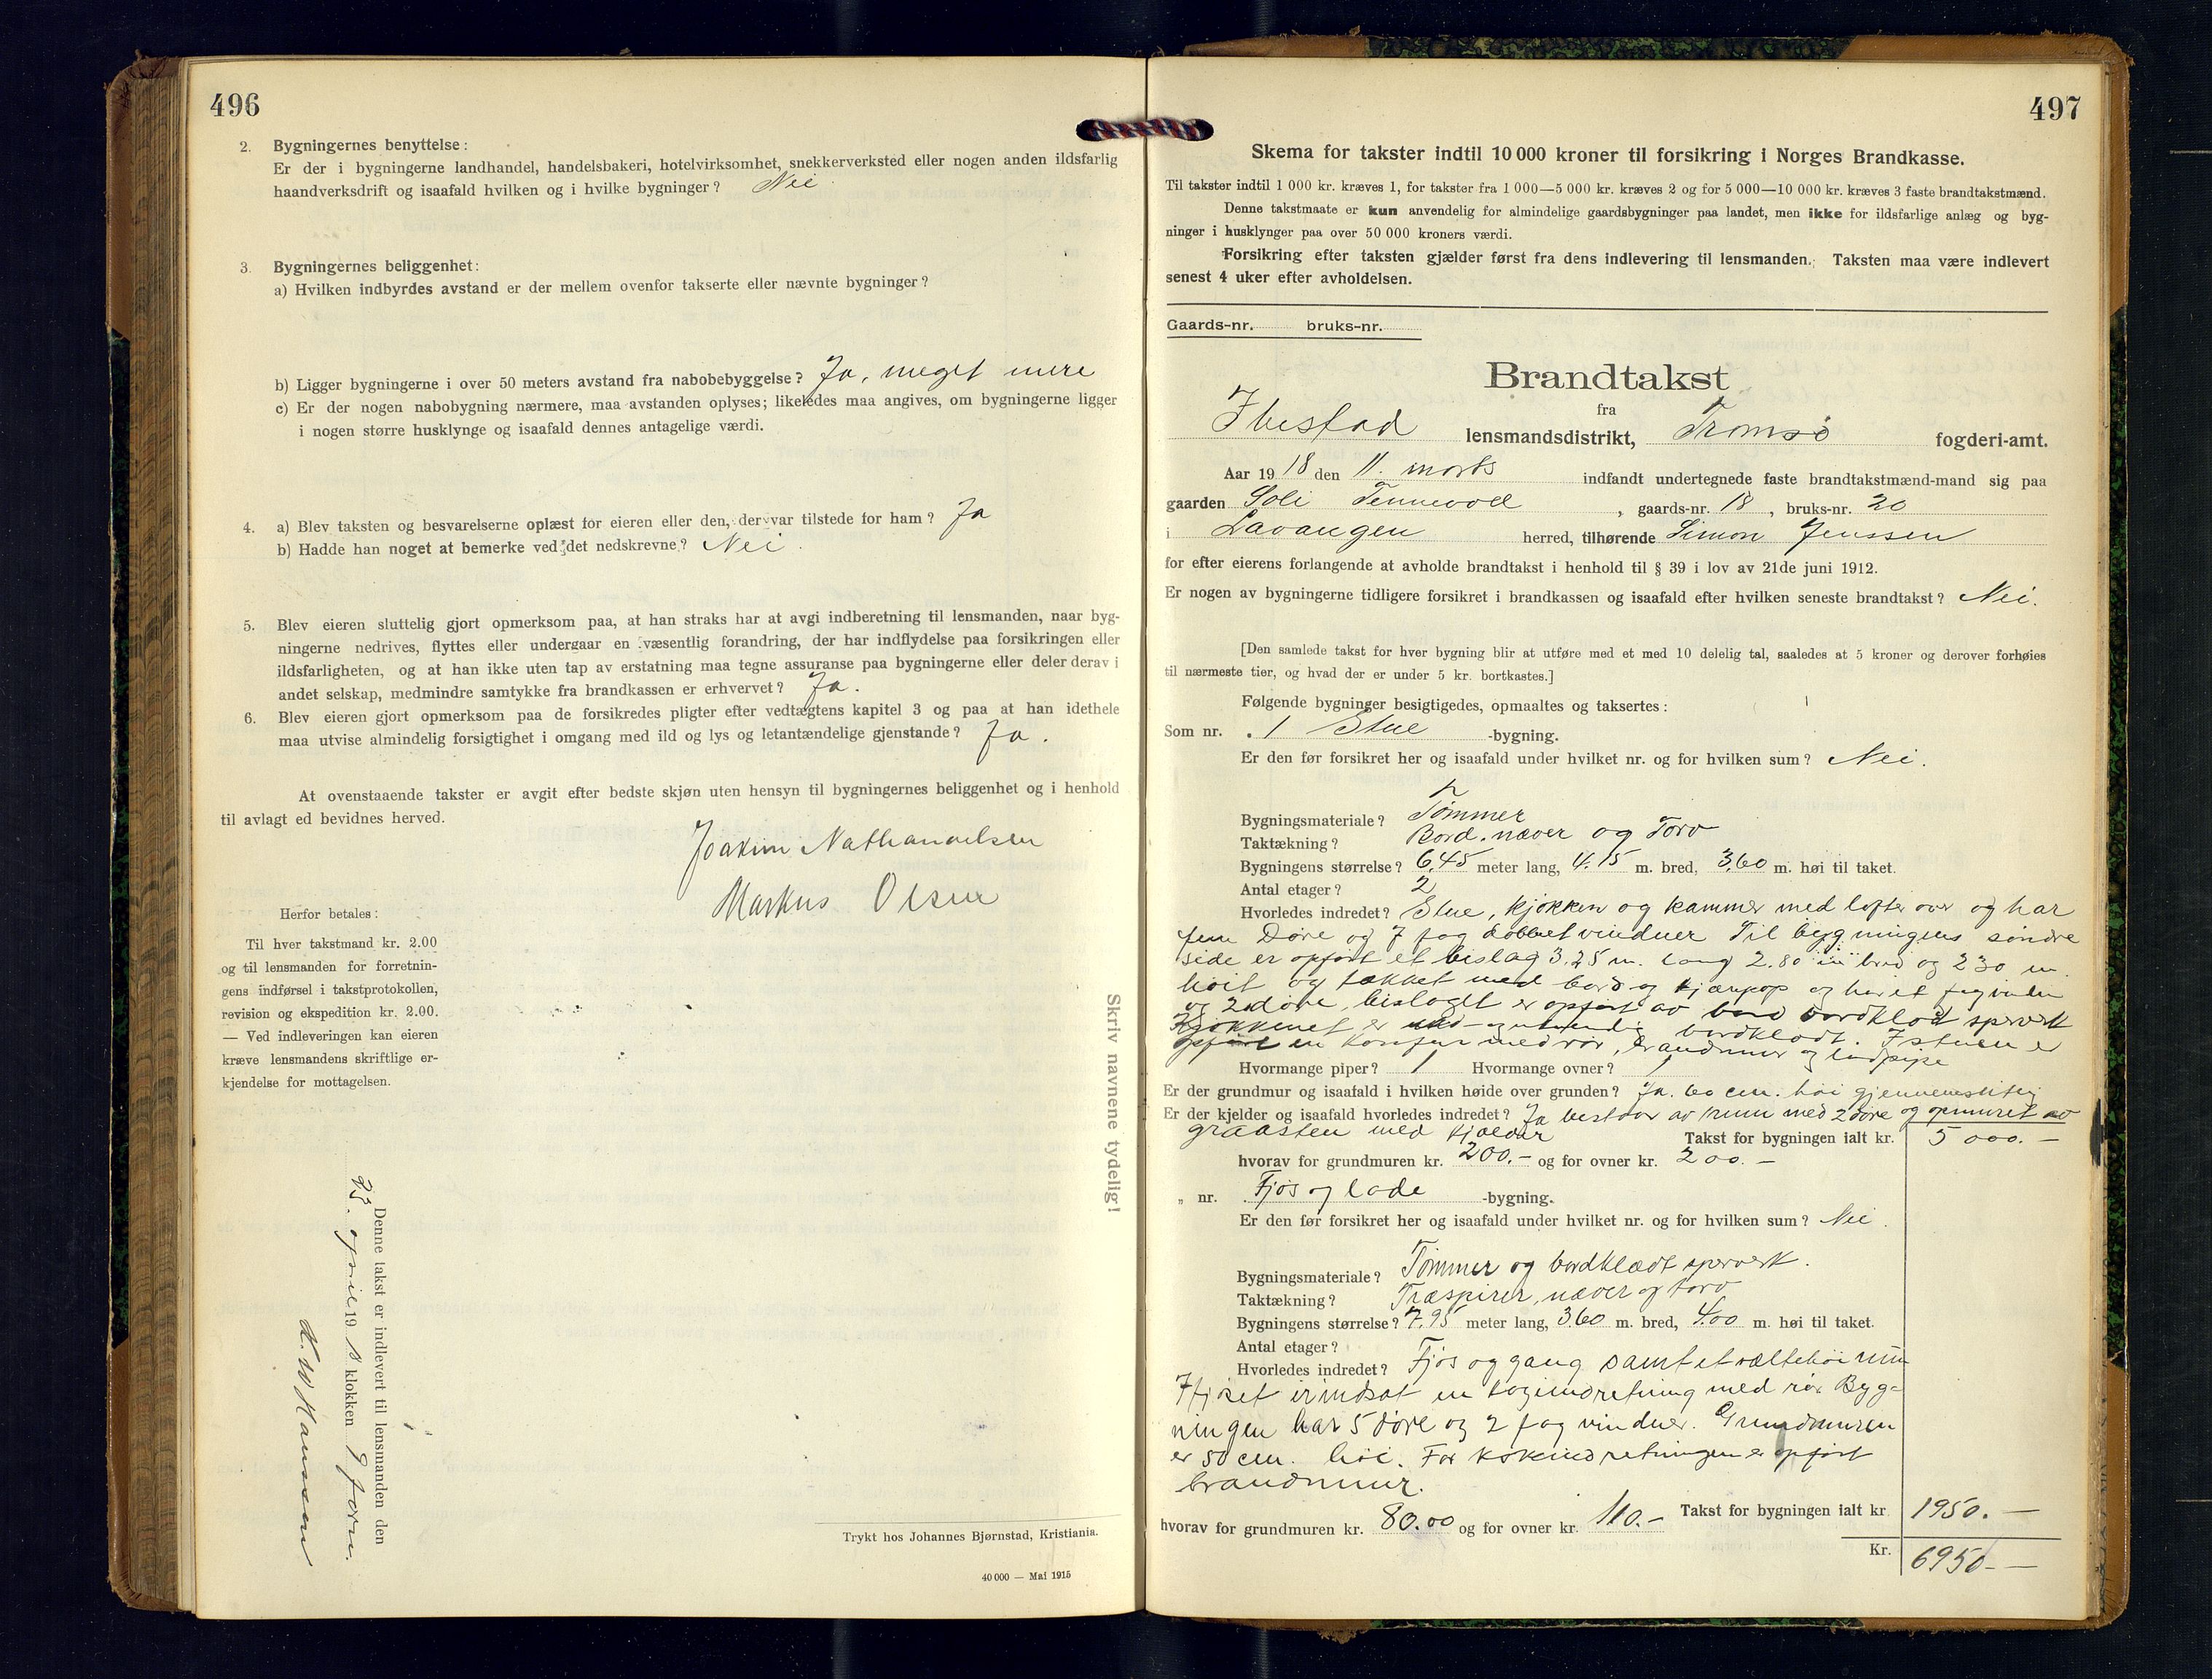 496
2. Bygningernes benyttelse:
Er der i bygningerne landhandel, handelsbakeri, hotelvirksomhet, snekkerverksted eller nogen anden ildsfarlig
haandverksdrift og isaafald hvilken og i hvilke bygninger? Nei
3. Bygningernes beliggenhet:
a) Hvilken indbyrdes avstand er der mellem ovenfor takserte eller nævnte bygninger?
b) Ligger bygningerne i over 50 meters avstand fra nabobebyggelse? Ja, meget mere
c) Er der nogen nabobygning nærmere, maa avstanden oplyses; likeledes maa angives, om bygningerne ligger
i nogen større husklynge og isaafald dennes antagelige værdi.
4. a) Blev taksten og besvarelserne oplæst for eieren eller den, der var tilstede for ham? Ja
b) Hadde han noget at bemerke ved det nedskrevne? Nei.
5. Blev eieren sluttelig gjort opmerksom paa, at han straks har at avgi indberetning til lensmanden, naar byg-
ningerne nedrives, flyttes eller undergaar en væsentlig forandring, der har indflydelse paa forsikringen eller
ildsfarligheten, og at han ikke uten tap av erstatning maa tegne assuranse paa bygningerne eller deler derav i
andet selskap, medmindre samtykke fra brandkassen er erhvervet? Ja.
6. Blev eieren gjort opmerksom paa de forsikredes pligter efter vedtægtens kapitel 3 og paa at han idethele
maa utvise almindelig forsigtighet i omgang med ild og lys og letantændelige gjenstande? Ja.
At ovenstaaende takster er avgit efter bedste skjøn uten hensyn til bygningernes beliggenhet og i henhold
til avlagt ed bevidnes herved.
Joakim Nathanaelsen
Markus Olsen
Herfor betales:
Til hver takstmand kr. 2.00
og til lensmanden for forretnin-
gens indførsel i takstprotokollen,
revision og ekspedition kr. 2.00.
— Ved indleveringen kan eieren
kræve lensmandens skriftlige er-
kjendelse for mottagelsen.
Skriv navnene tydelig!
Denne takst er indlevert til lensmanden den
25. april 1918 klokken 9 form.
Hanssen
Trykt hos Johannes Bjørnstad, Kristiania.
40 000 — Mai 1915
497
Skema for takster indtil 10 000 kroner til forsikring i Norges Brandkasse.
Til takster indtil 1 000 kr. kræves 1, for takster fra 1 000—5 000 kr. kræves 2 og for 5 000—10 000 kr. kræves 3 faste brandtakstmænd.
Denne takstmaate er kun anvendelig for almindelige gaardsbygninger paa landet, men ikke for ildsfarlige anlæg og byg-
ninger i husklynger paa over 50 000 kroners værdi.
Forsikring efter taksten gjælder først fra dens indlevering til lensmanden. Taksten maa være indlevert
senest 4 uker efter avholdelsen.
Gaards-nr. bruks-nr.
Brandtakst
fra
Ibestad lensmandsdistrikt, Tromsø fogderi-amt.
Aar 1918 den 11. marts indfandt undertegnede faste brandtakstmænd-mand sig paa
gaarden Soli Tennevoll, gaards-nr. 18, bruks-nr. 20
i Lavangen herred, tilhørende Simon Jenssen
for efter eierens forlangende at avholde brandtakst i henhold til § 39 i lov av 21de juni 1912.
Er nogen av bygningerne tidligere forsikret i brandkassen og isaafald efter hvilken seneste brandtakst? Nei.
[Den samlede takst for hver bygning blir at utføre med et med 10 delelig tal, saaledes at 5 kroner og derover forhøies
til nærmeste tier, og hvad der er under 5 kr. bortkastes.]
Følgende bygninger besigtigedes, opmaaltes og taksertes:
Som nr. 1 Stue -bygning.
Er den før forsikret her og isaafald under hvilket nr. og for hvilken sum? Nei.
Bygningsmateriale? Tømmer
Taktækning? Bord, næver og Torv
Bygningens størrelse? 6,45 meter lang, 4.15 m. bred, 3,60 m. høi til taket.
Antal etager? 2
Hvorledes indredet? Stue, kjøkken og kammer med lofter over og har
fem Døre og 7 fag dobbelt vinduer Til bygningens søndre
side er opført et bislag 3.25 m. lang 2.80 m bred og 230 m.
høit og tækket med bord og og har et fag vindu
og 2 døre, bislaget er opført av bordklædt sperverk
Kjøkkenet er bordklædt. I stuen er
opført en komfur med rør, brandmur og
Hvormange piper? 1 Hvormange ovner? 1
Er der grundmur og isaafald i hvilken høide over grunden? Ja. 60 cm. høi gjennemsnitlig
Er der kjelder og isaafald hvorledes indredet? Ja bestaar av 1 rum med 2 døre og opmuret av
graasten med kjælder Takst for bygningen ialt kr. 5000.—
hvorav for grundmuren kr. 200.— og for ovner kr. 200.—
„ nr. Fjøs og lade -bygning.
Er den før forsikret her og isaafald under hvilket nr. og for hvilken sum? Nei.
Bygningsmateriale? Tømmer og bordklædt sperverk.
Taktækning? Træspirer, næver og torv
Bygningens størrelse? 7.95 meter lang, 3.60 m. bred, 4.00 m. høi til taket.
Antal etager?
Hvorledes indredet? Fjøs og gang samt et rum
I fjøset er indsat en kogeindretning med rør Byg-
ningen har 5 døre og 2 fag vinduer. Grundmuren
er 50 cm. høi. For kokeindretningen er opført
brandmur.
Takst for bygningen ialt kr 1950.—
hvorav for grundmuren kr. 80.00 og for ovner kr. 110.—
Kr. 6950.—